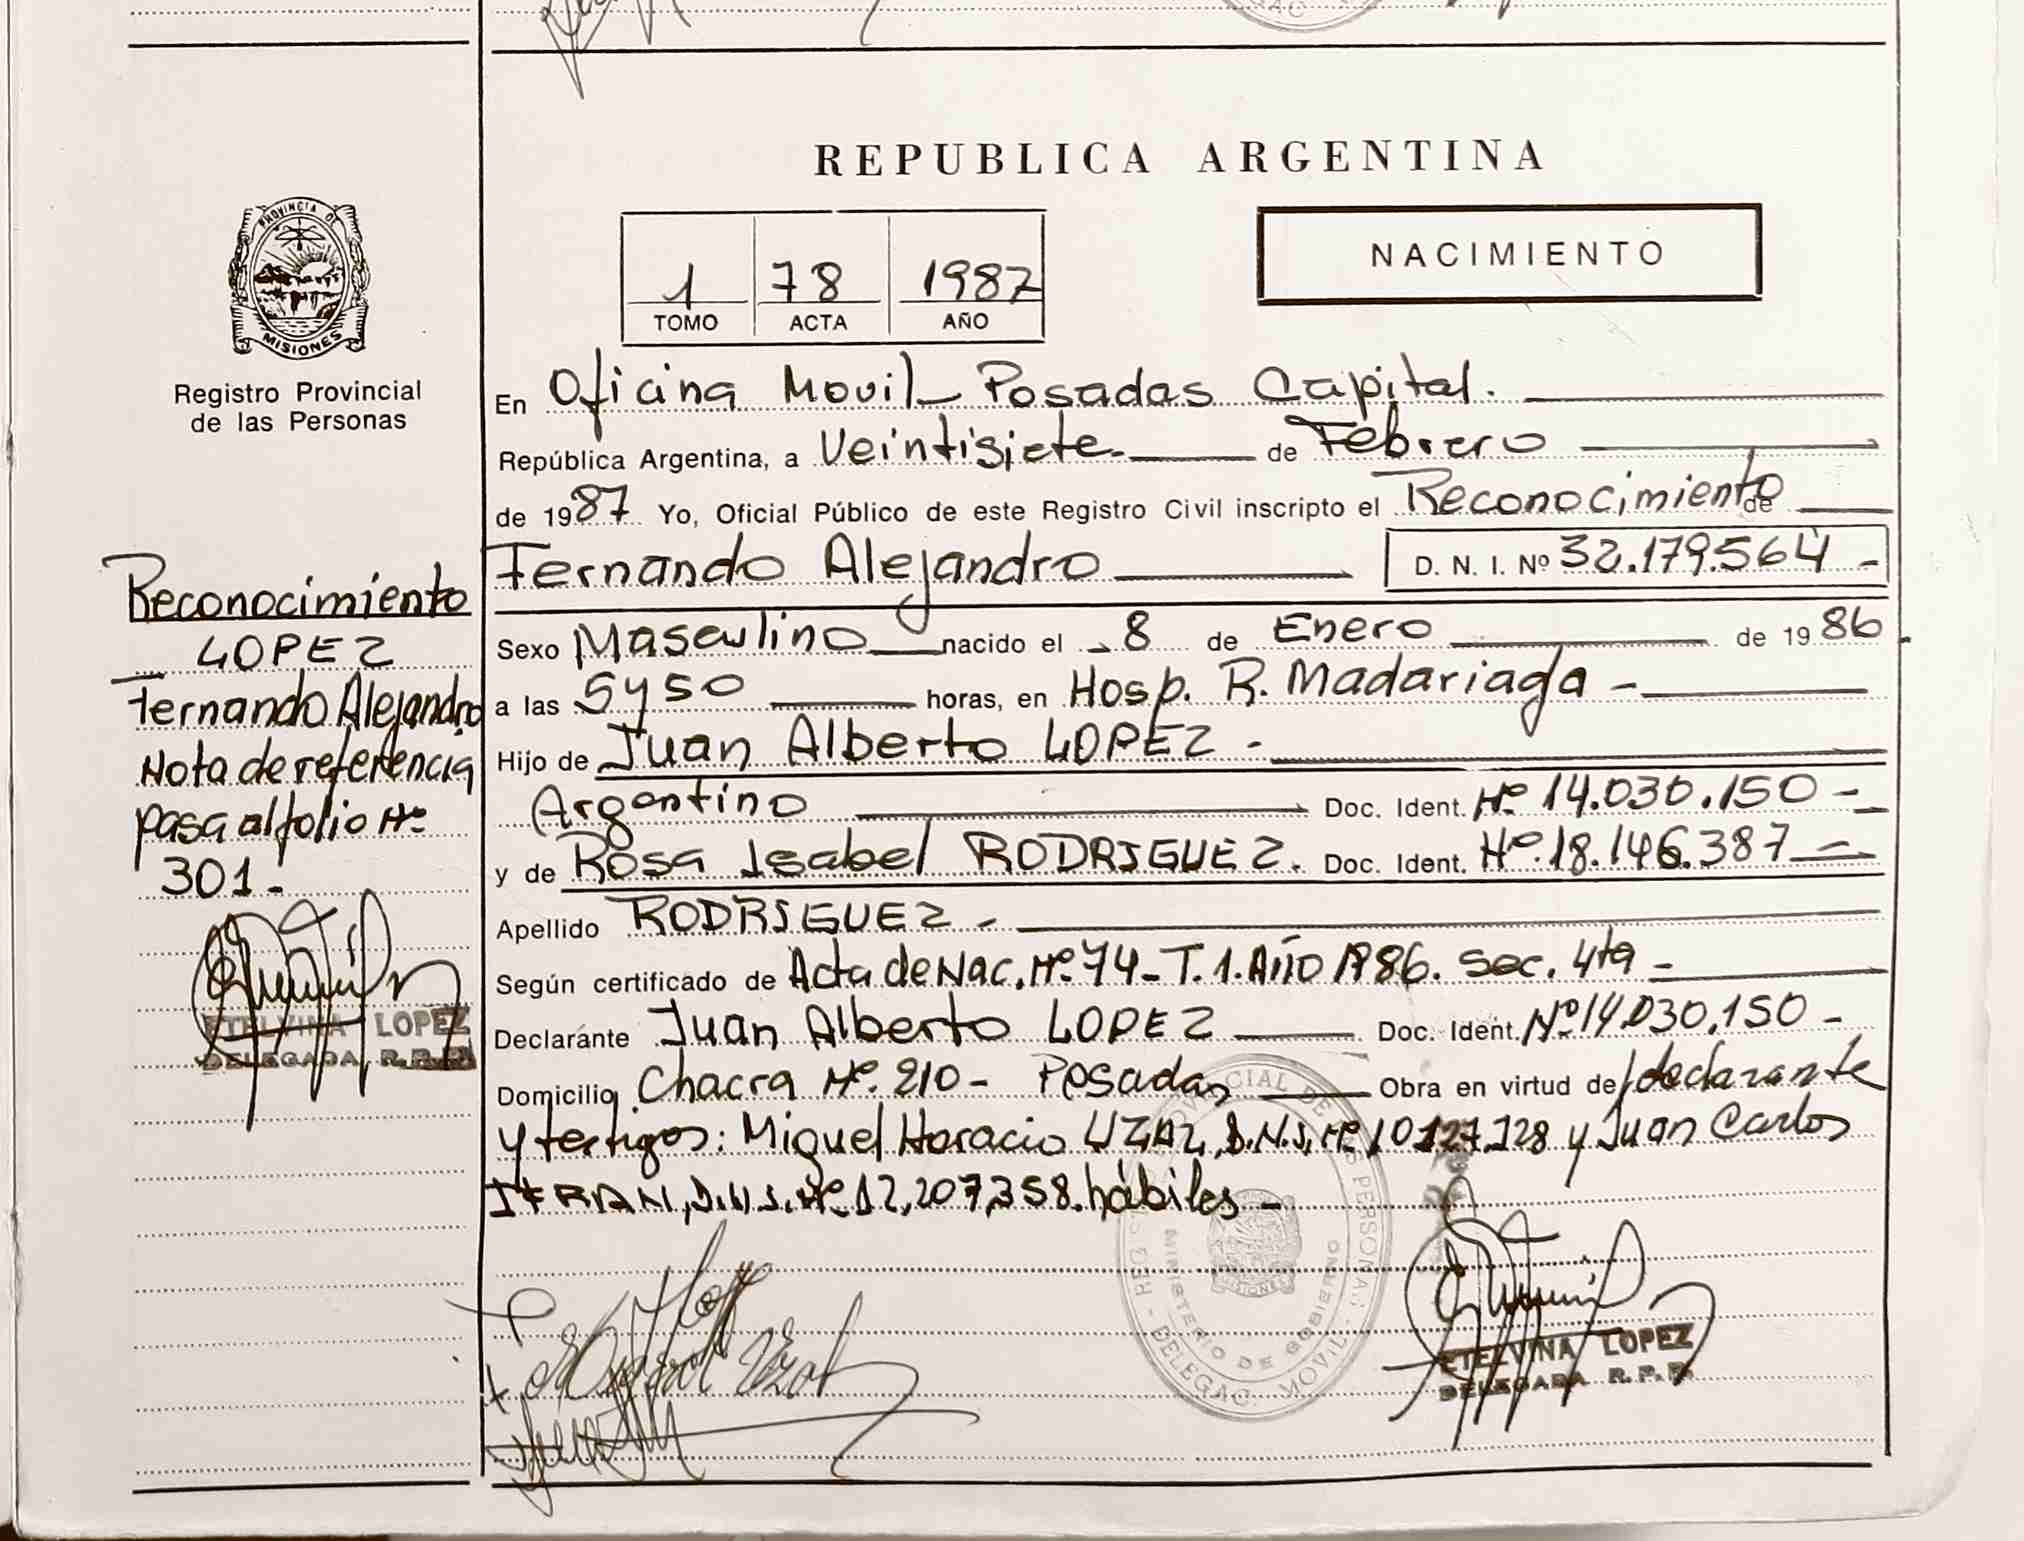 REPUBLICA ARGENTINA
NACIMIENTO
1 78 1987
TOMO ACTA AÑO
PROVINCIA DE
MISIONES
Registro Provincial
de las Personas
En Oficina Movil - Posadas Capital.
República Argentina, a Veintisiete de Febrero
de 1987 Yo, Oficial Público de este Registro Civil inscripto el Reconocimiento de
Fernando Alejandro D. N. I. Nº 32.179.564 -
Sexo Masculino nacido el 8 de Enero de 1986
a las 5 y 50 horas, en Hosp. R. Madariaga -
Hijo de Juan Alberto LOPEZ -
Argentino Doc. Ident. Nº 14.030.150 -
y de Rosa Isabel RODRIGUEZ. Doc. Ident. Nº 18.146.387
Apellido RODRIGUEZ -
Según certificado de Acta de Nac. Nº 74 - T. 1. Año 1986. Sec. 4ta -
Declarante Juan Alberto LOPEZ Doc. Ident. Nº 14.030.150 -
Domicilio Chacra Nº 210 - Posadas Obra en virtud de declarante
y testigos: Miguel Horacio D.N.I. Nº y Juan Carlos
D.N.I. Nº 12.207.358. hábiles -
Reconocimiento
LOPEZ
Fernando Alejandro
Nota de referencia
pasa al folio Nº
301 -
ETELVINA LOPEZ
DELEGADA R. P. P.
MINISTERIO DE GOBIERNO
DELEGAC. MOVIL
ETELVINA LOPEZ
DELEGADA R. P. P.